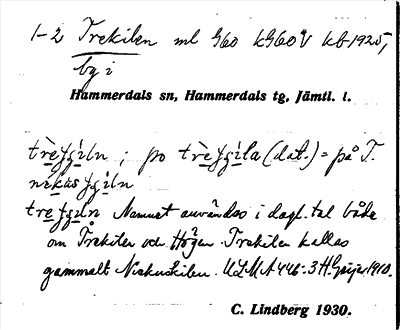 1-2 Trekilen ml G60 kG60V kb 1925,
by i
Hammerdals sn, Hammerdals tg, Jämtl. l.
; po (dat.) = på T.
Namnet användes i dagl. tal både
om Trekilen och Högen. Trekilen kallas
gammalt Niskuskilen. ULMA 446:3 H. Geijer 1910.
C. Lindberg 1930.